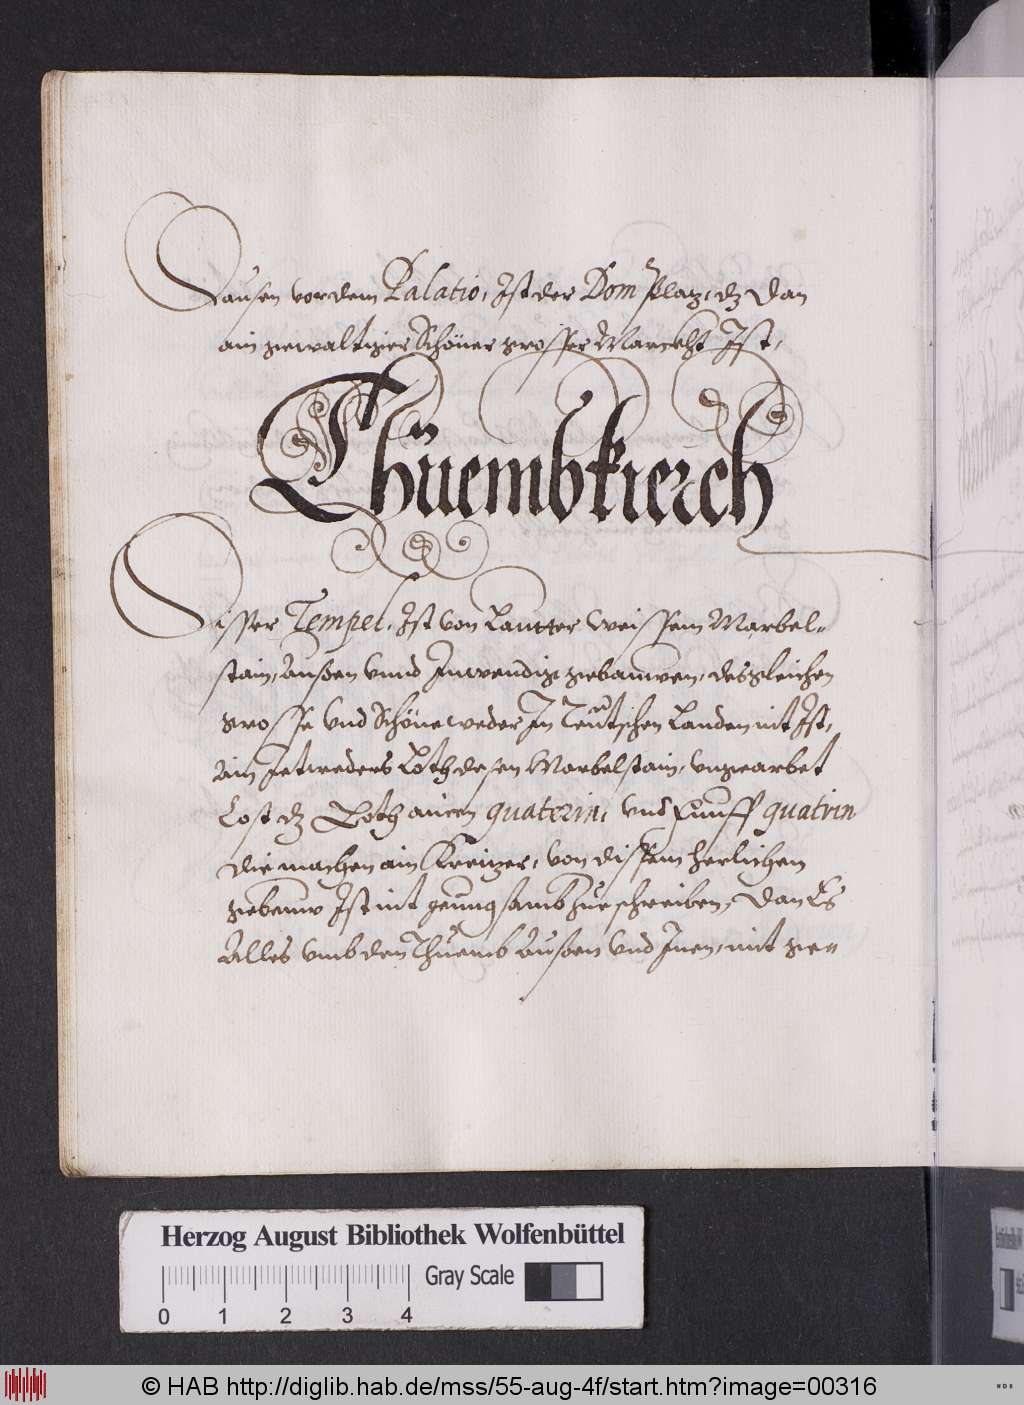 Daussen vor dem Palatio, Ist der Dom Platz, dz dan
ain gewaltiger Schöner grosser Marckht Ist,
Thüembkierch
Disser Tempel, Ist von Lautter weissem Marbel„
stain, Aussen vnnd Inwendig gebauwen, desgleichen
grosse vnd Schöne weder In Teutschen Landen nit Ist,
Ain Jetweders Loth desen Marbelstain, vngearbet
Cost dz Loth ainen quaterin, vnd Funff quatrin
die machen ain Kreitzer, von dissem herlichen
gebeuw Ist nit genuogsamb zue schreiben, dan Es
Alles vmb den Thuemb Aussen vnd Inen, mit ge„
Herzog August Bibliothek Wolfenbüttel
Gray Scale
0 1 2 3 4
© HAB http://diglib.hab.de/mss/55-aug-4f/start.htm?image=00316